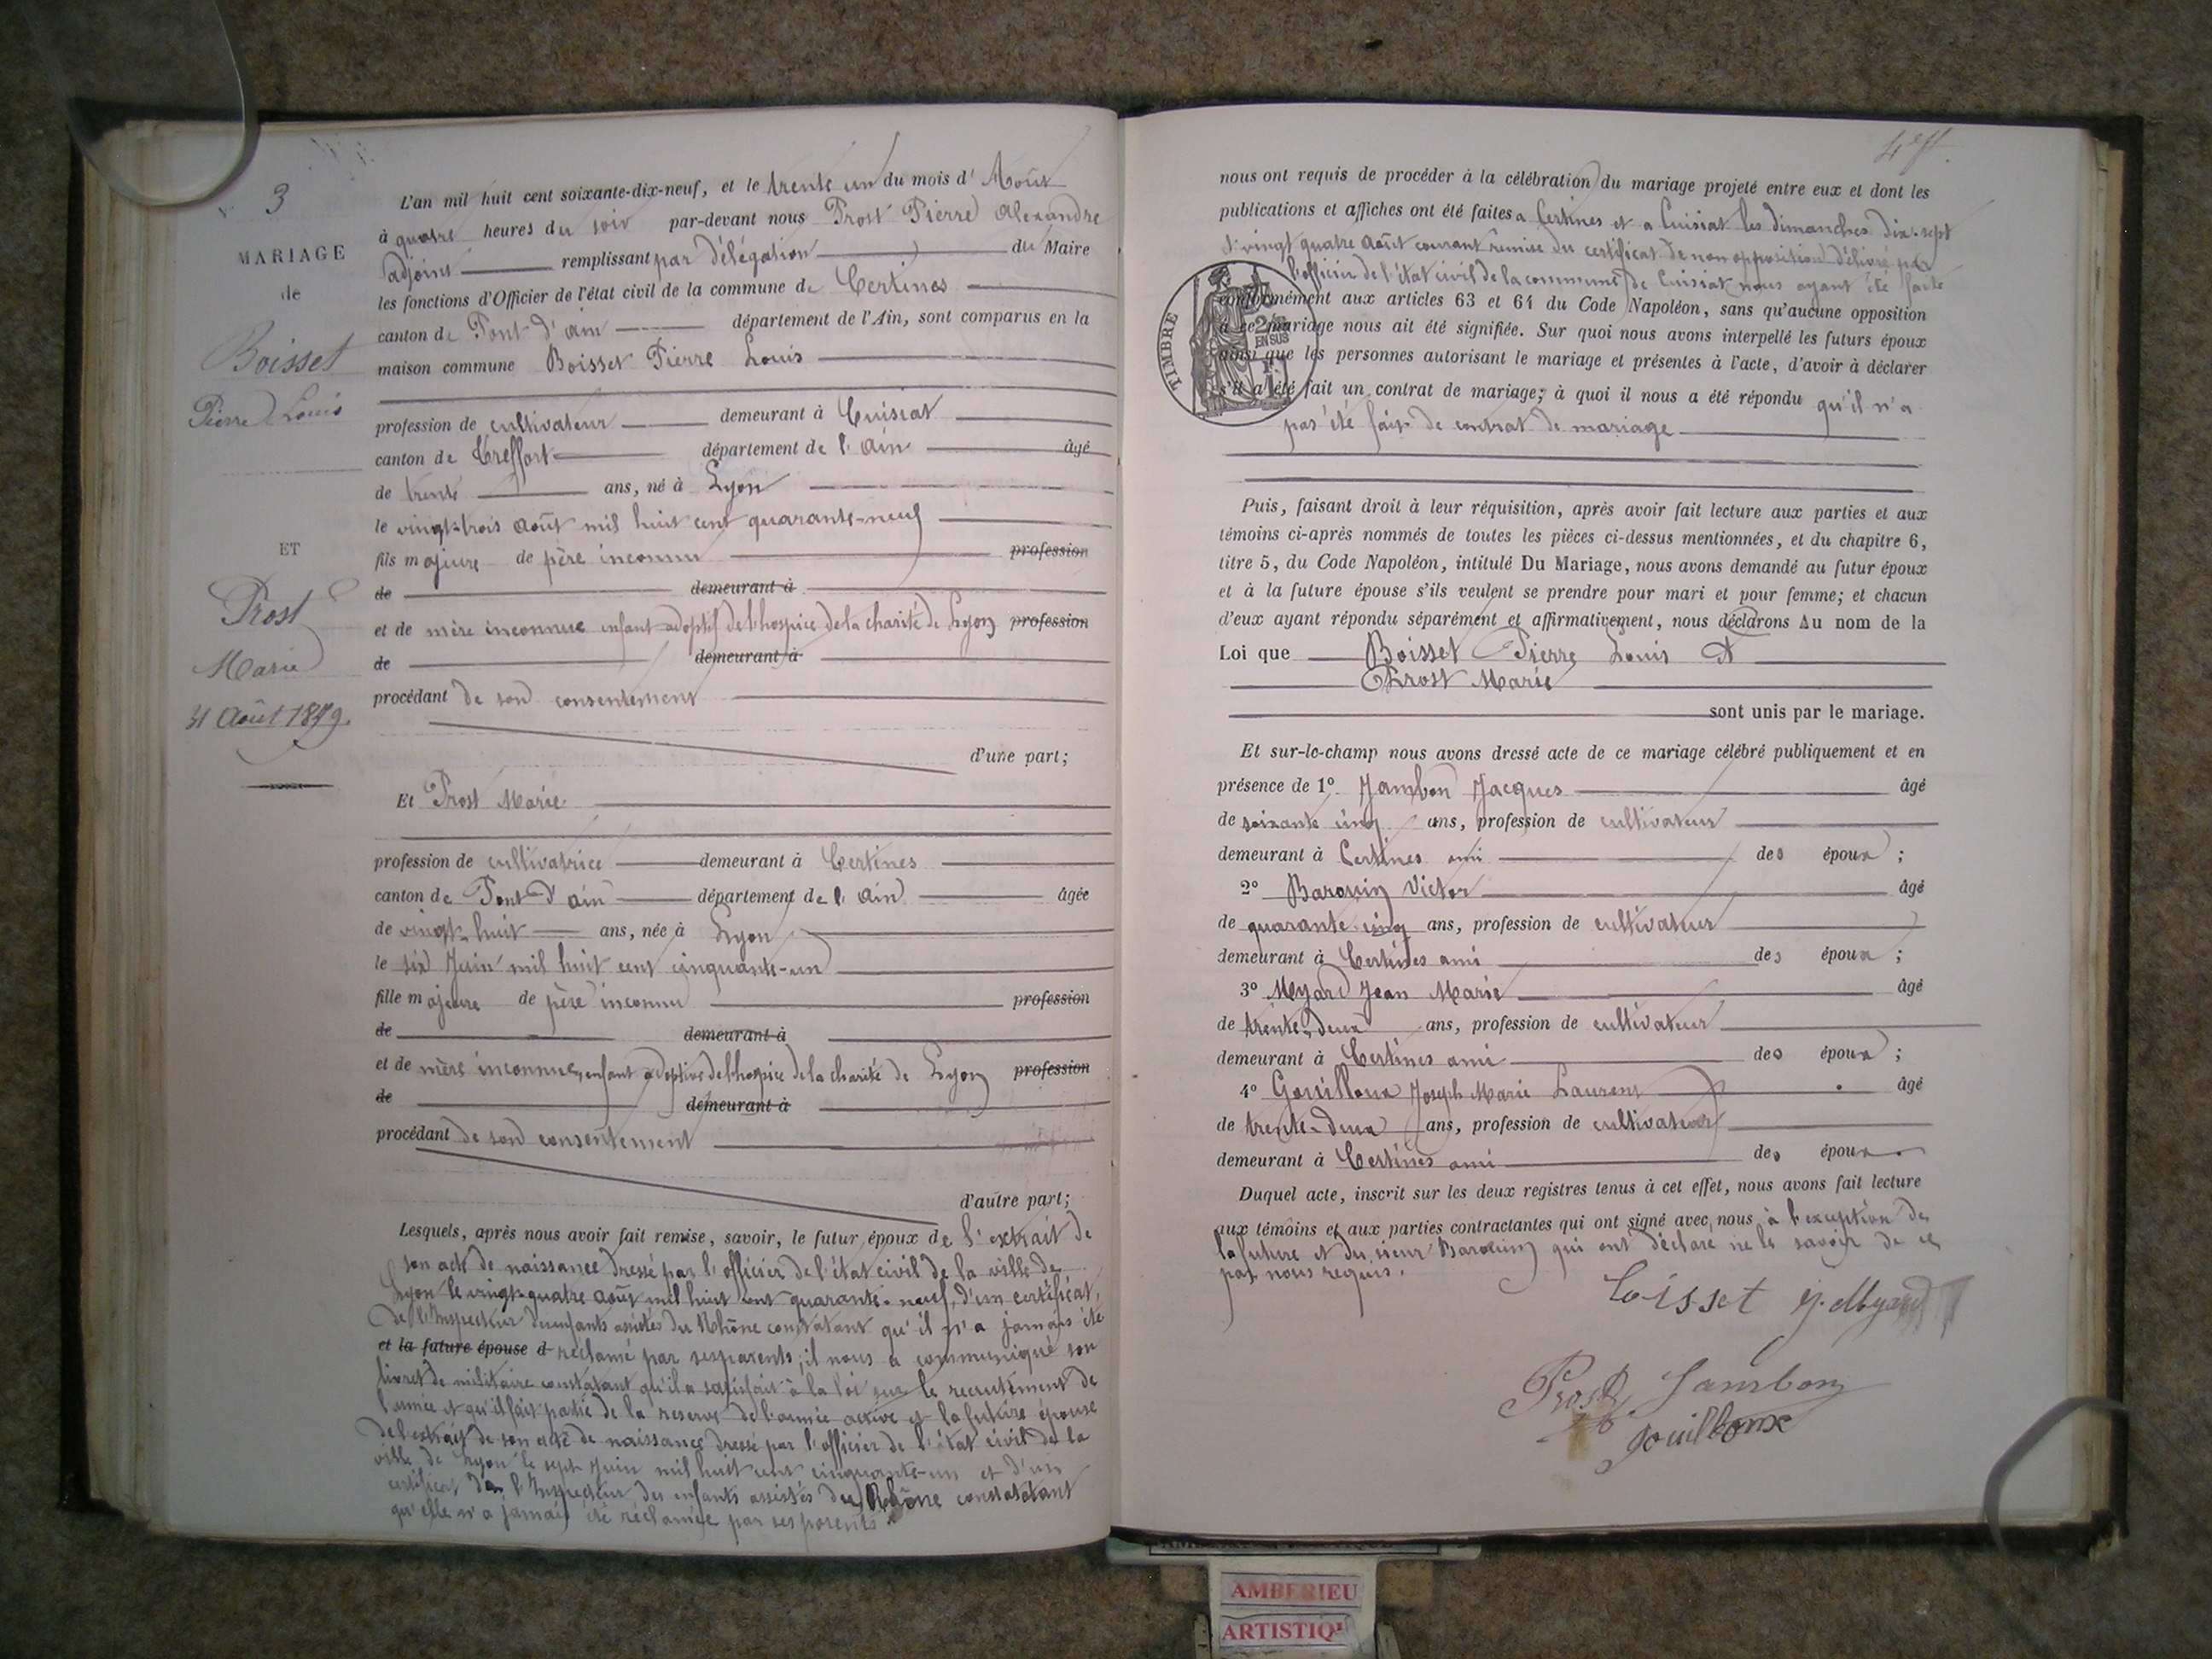 3
MARIAGE
de
Boisset
Pierre Louis
ET
Prost
Marie
31 Août 1879.
L'an mil huit cent soixante-dix-neuf, et le trente un du mois d'Août
à quatre heures du soir par-devant nous Prost Pierre Alexandre
adjoint remplissant par délégation du Maire
les fonctions d'Officier de l'état civil de la commune de Certines
canton de Pont d'ain département de l'Ain, sont comparus en la
maison commune Boisset Pierre Louis
profession de cultivateur demeurant à Cuisiat
canton de Treffort département de l'Ain âgé
de trente ans, né à Lyon
le vingt-trois août mil huit cent quarante-neuf
fils majeure de père inconnu profession
de demeurant à
et de mère inconnue enfant adoptif de l'hospice de la charité de Lyon profession
de demeurant à
procédant de son consentement
d'une part;
Et Prost Marie
profession de cultivatrice demeurant à Certines
canton de Pont d'ain département de l'Ain âgée
de vingt-huit ans, née à Lyon
le six Juin mil huit cent cinquante-un
fille majeure de père inconnu profession
de demeurant à
et de mère inconnue, enfant adoptive de l'hospice de la charité de Lyon profession
de demeurant à
procédant de son consentement
d'autre part;
Lesquels, après nous avoir fait remise, savoir, le futur époux de l'extrait de
son acte de naissance dressé par l'officier de l'état civil de la ville de
Lyon le vingt-quatre août mil huit cent quarante-neuf, d'un certificat,
de l'Inspecteur des enfants assistés du Rhône constatant qu'il n'a jamais été
et la future épouse d réclamé par ses parents; il nous a communiqué son
livret de militaire constatant qu'il a satisfait à la loi sur le recrutement de
l'armée et qu'il fait partie de la reserve de l'armée active et la future épouse
de l'extrait de son acte de naissance dressé par l'officier de l'état civil de la
ville de Lyon le sept Juin mil huit cent cinquante-un et d'un
certificat de l'Inspecteur des enfants assistés du Rhône constatant
qu'elle n'a jamais été réclamée par ses parents.
nous ont requis de procéder à la célébration du mariage projeté entre eux et dont les
publications et affiches ont été faites a Certines et a Cuisiat les dimanches dix-sept
et vingt quatre août courant remise du certificat de non opposition délivré par
l'officier de l'état civil de la commune de Cuisiat nous ayant été faite
conformément aux articles 63 et 64 du Code Napoléon, sans qu'aucune opposition
à ce mariage nous ait été signifiée. Sur quoi nous avons interpellé les futurs époux
ainsi que les personnes autorisant le mariage et présentes à l'acte, d'avoir à déclarer
s'il a été fait un contrat de mariage; à quoi il nous a été répondu qu'il n'a
pas été fait de contrat de mariage
TIMBRE
EN SUS
Puis, faisant droit à leur réquisition, après avoir fait lecture aux parties et aux
témoins ci-après nommés de toutes les pièces ci-dessus mentionnées, et du chapitre 6,
titre 5, du Code Napoléon, intitulé Du Mariage, nous avons demandé au futur époux
et à la future épouse s'ils veulent se prendre pour mari et pour femme; et chacun
d'eux ayant répondu séparément et affirmativement, nous déclarons Au nom de la
Loi que Boisset Pierre Louis et
Prost Marie
sont unis par le mariage.
Et sur-le-champ nous avons dressé acte de ce mariage célébré publiquement et en
présence de 1º Jambon Jacques âgé
de soixante cinq ans, profession de cultivateur
demeurant à Certines ami des époux;
2º Barouin Victor âgé
de quarante-cinq ans, profession de cultivateur
demeurant à Certines ami des époux;
3º Myard Jean Marie âgé
de trente-deux ans, profession de cultivateur
demeurant à Certines ami des époux;
4º Gouilloux Joseph Marie Laurent âgé
de trente-deux ans, profession de cultivateur
demeurant à Certines ami des époux.
Duquel acte, inscrit sur les deux registres tenus à cet effet, nous avons fait lecture
aux témoins et aux parties contractantes qui ont signé avec nous à l'exception de
la future et du sieur Barouin qui ont déclaré ne le savoir de ce
par nous requis.
Boisset J. Myard
Prost Jambon
Gouilloux
AMBERIEU
ARTISTIQ